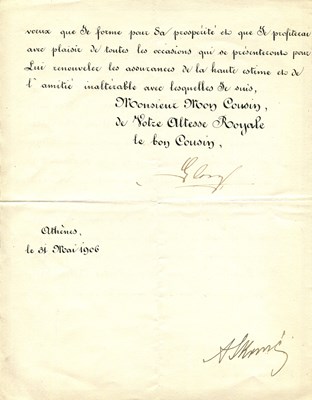 vœux que Je forme pour Sa prospérité et que Je profiterai
avec plaisir de toutes les occasions qui se présenteront pour
Lui renouveler les assurances de la haute estime et de
l'amitié inaltérable avec lesquelles Je suis,
Monsieur Mon Cousin,
de Votre Altesse Royale
le bon Cousin,
Athènes,
le 31 Mai 1906